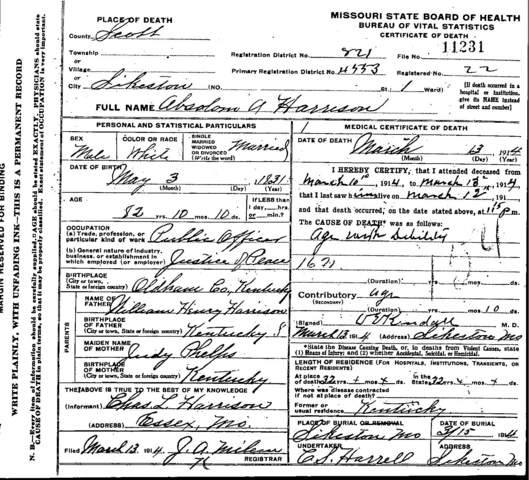 MISSOURI STATE BOARD OF HEALTH
BUREAU OF VITAL STATISTICS
CERTIFICATE OF DEATH
PLACE OF DEATH
County Scott
Township
or
Village
or
City Sikeston (NO. St.; 1 Ward)
Registration District No. 821 File No. 11231
Primary Registration District No. 4553 Registered No. 22
[If death occurred in a hospital or institution, give its NAME instead of street and number]
FULL NAME Absolom A Harrison
PERSONAL AND STATISTICAL PARTICULARS
SEX Male
COLOR OR RACE White
SINGLE MARRIED WIDOWED OR DIVORCED (Write the word) Married
DATE OF BIRTH May 3 1831
(Month) (Day) (Year)
AGE 82 yrs. 10 mos. 10 ds.
If LESS than 1 day,....hrs. or....min.?
OCCUPATION
(a) Trade, profession, or particular kind of work Public Officer
(b) General nature of industry, business, or establishment in which employed (or employer) Justice of Peace
BIRTHPLACE
(City or town, State or foreign country) Oldham Co, Kentucky
PARENTS
NAME OF FATHER William Henry Harrison
BIRTHPLACE OF FATHER (City or town, State or foreign country) Kentucky
MAIDEN NAME OF MOTHER Phelps
BIRTHPLACE OF MOTHER (City or town, State or foreign country) Kentucky
THE ABOVE IS TRUE TO THE BEST OF MY KNOWLEDGE
(Informant) Chas L Harrison
(ADDRESS) Essex, Mo.
Filed March 13, 1914 J. A.
REGISTRAR
MEDICAL CERTIFICATE OF DEATH
DATE OF DEATH March 13 1914
(Month) (Day) (Year)
I HEREBY CERTIFY, that I attended deceased from
March 10th, 1914, to March 13th, 1914
that I last saw him alive on March 12th, 191
and that death occurred, on the date stated above, at m.
The CAUSE OF DEATH* was as follows:
Age with Debility
(Duration) yrs. mos. ds.
Contributory Age
(SECONDARY)
(Duration) yrs. mos. 10 ds.
(Signed) M. D.
March 13, 1914 (Address) Sikeston Mo
*State the Disease Causing Death, or, in deaths from Violent Causes, state (1) Means of Injury; and (2) whether Accidental, Suicidal, or Homicidal.
LENGTH OF RESIDENCE (FOR HOSPITALS, INSTITUTIONS, TRANSIENTS, OR RECENT RESIDENTS)
At place of death yrs. mos. ds. In the State yrs. mos. ds.
Where was disease contracted
if not at place of death?
Former or usual residence Kentucky
PLACE OF BURIAL OR REMOVAL Sikeston Mo
DATE OF BURIAL 3/15 1914
UNDERTAKER C.S. Harrell
ADDRESS Sikeston Mo
MARGIN RESERVED FOR BINDING
WRITE PLAINLY, WITH UNFADING INK—THIS IS A PERMANENT RECORD
N. B.—Every item of information should be carefully supplied. AGE should be stated EXACTLY. PHYSICIANS should state
CAUSE OF DEATH in plain terms, so that it may be properly classified. Exact statement of OCCUPATION is very important.